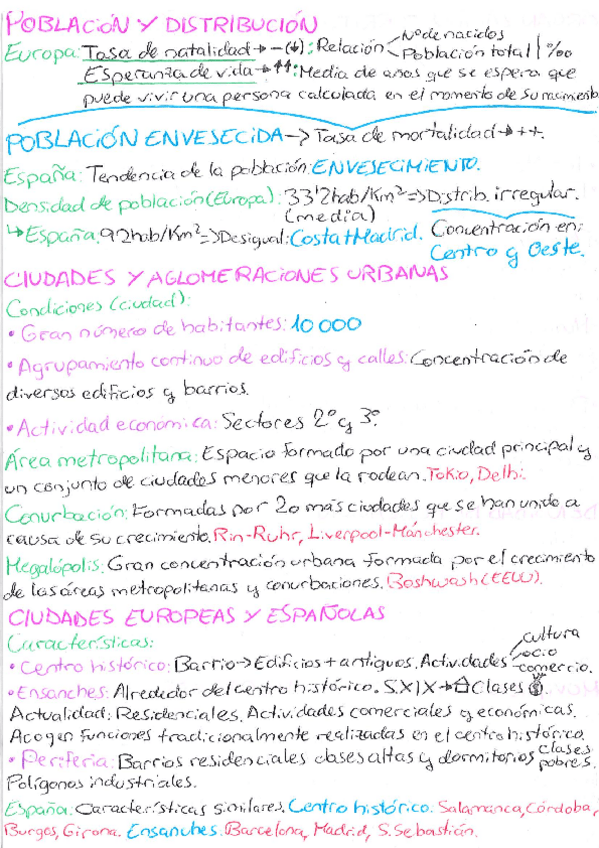 POBLACIÓN Y DISTRIBUCIÓN
Europa: Tasa de natalidad → - (↓): Relación < Nº de nacidos / Población total | ‰
Esperanza de vida → ↑↑: Media de anos que se espera que
puede vivir una persona calculada en el momento de su nacimiento
POBLACIÓN ENVESECIDA → Tasa de mortalidad → ++.
España: Tendencia de la población: ENVESECIMIENTO.
Densidad de población (Europa): 33'2 hab/Km² => Distrib. irregular.
(media)
↳ España: 92 hab/Km² => Desigual: Costa + Madrid. Concentración en:
Centro y Oeste.
CIUDADES Y AGLOMERACIONES URBANAS
Condiciones (ciudad):
• Gran número de habitantes: 10 000
• Agrupamiento continuo de edificios y calles: Concentración de
diversos edificios y barrios.
• Actividad económica: Sectores 2º y 3º.
Área metropolitana: Espacio formado por una ciudad principal y
un conjunto de ciudades menores que la rodean. Tokio, Delhi.
Conurbación: Formadas por 2 o más ciudades que se han unido a
causa de su crecimiento. Rin-Ruhr, Liverpool-Mánchester.
Megalópolis: Gran concentración urbana formada por el crecimiento
de las áreas metropolitanas y conurbaciones. Boshwash (EEUU).
CIUDADES EUROPEAS Y ESPAÑOLAS
Características:
• Centro histórico: Barrio → Edificios + antiguos. Actividades < cultura / ocio / comercio.
• Ensanches: Alrededor del centro histórico. S.XIX → Clases
Actualidad: Residenciales. Actividades comerciales y económicas.
Acogen funciones tradicionalmente realizadas en el centro histórico.
• Periferia: Barrios residenciales clases altas y dormitorios clases pobres.
Polígonos industriales.
España: Características similares. Centro histórico: Salamanca, Córdoba,
Burgos, Girona. Ensanches: Barcelona, Madrid, S. Sebastián.